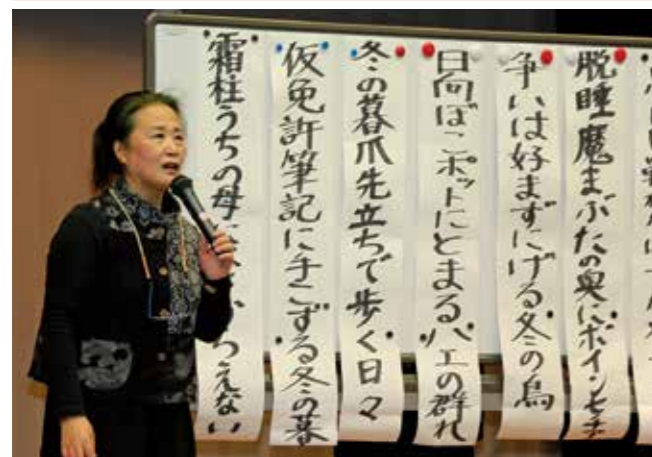 脱睡魔まぶたの奥にポインセチ
争いは好まずにげる冬の鳥
日向ぼこポットにとまるハエの群れ
冬の暮爪先立ちで歩く日々
仮免許筆記に手こずる冬の暮
霜柱うちの母
えない